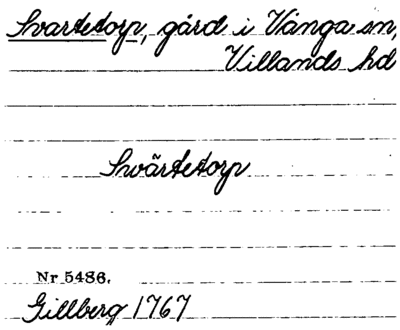 Svartetorp, gård i Vånga sn,
Villands hd
Swärtetorp
Nr 5486.
Gillberg 1767